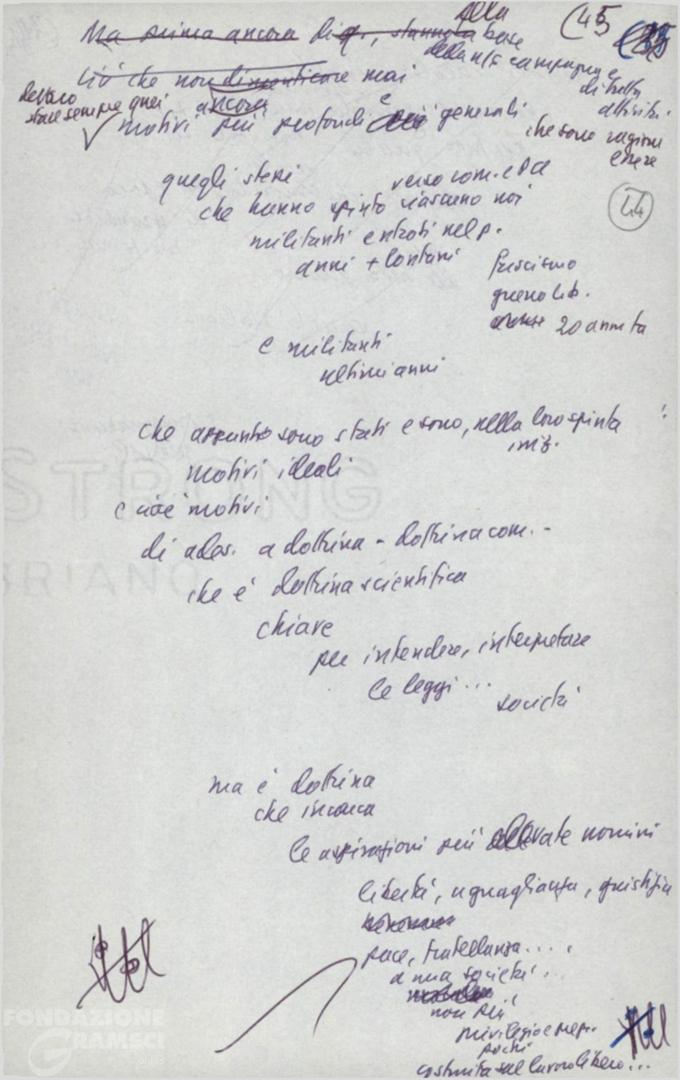 (45
Ma prima ancora di q., stanno
alla base
della ns campagna e
di tutta
attività
che sono ragioni
essere
Ciò che non dimenticare mai
devono
stare sempre quei
ancora
motivi più profondi e più generali
44
quegli stessi
verso com. e Pd
che hanno spinto ciascuno noi
militanti entrati nel p.
anni + lontani
fascismo
guerra lib.
20 anni fa
e militanti
ultimi anni
che appunto sono stati e sono, nella loro spinta
motivi ideali
e cioè motivi
di ades. a dottrina - dottrina com. -
che è dottrina scientifica
chiave
per intendere, interpretare
le leggi ...
società
ma è dottrina
che incarna
le aspirazioni più elevate uomini
libertà, uguaglianza, giustizia
pace, fratellanza....
a una società ..
non più
privilegio e per.
pochi
costruita sul lavoro libero...
STRONG
FONDAZIONE
GRAMSCI